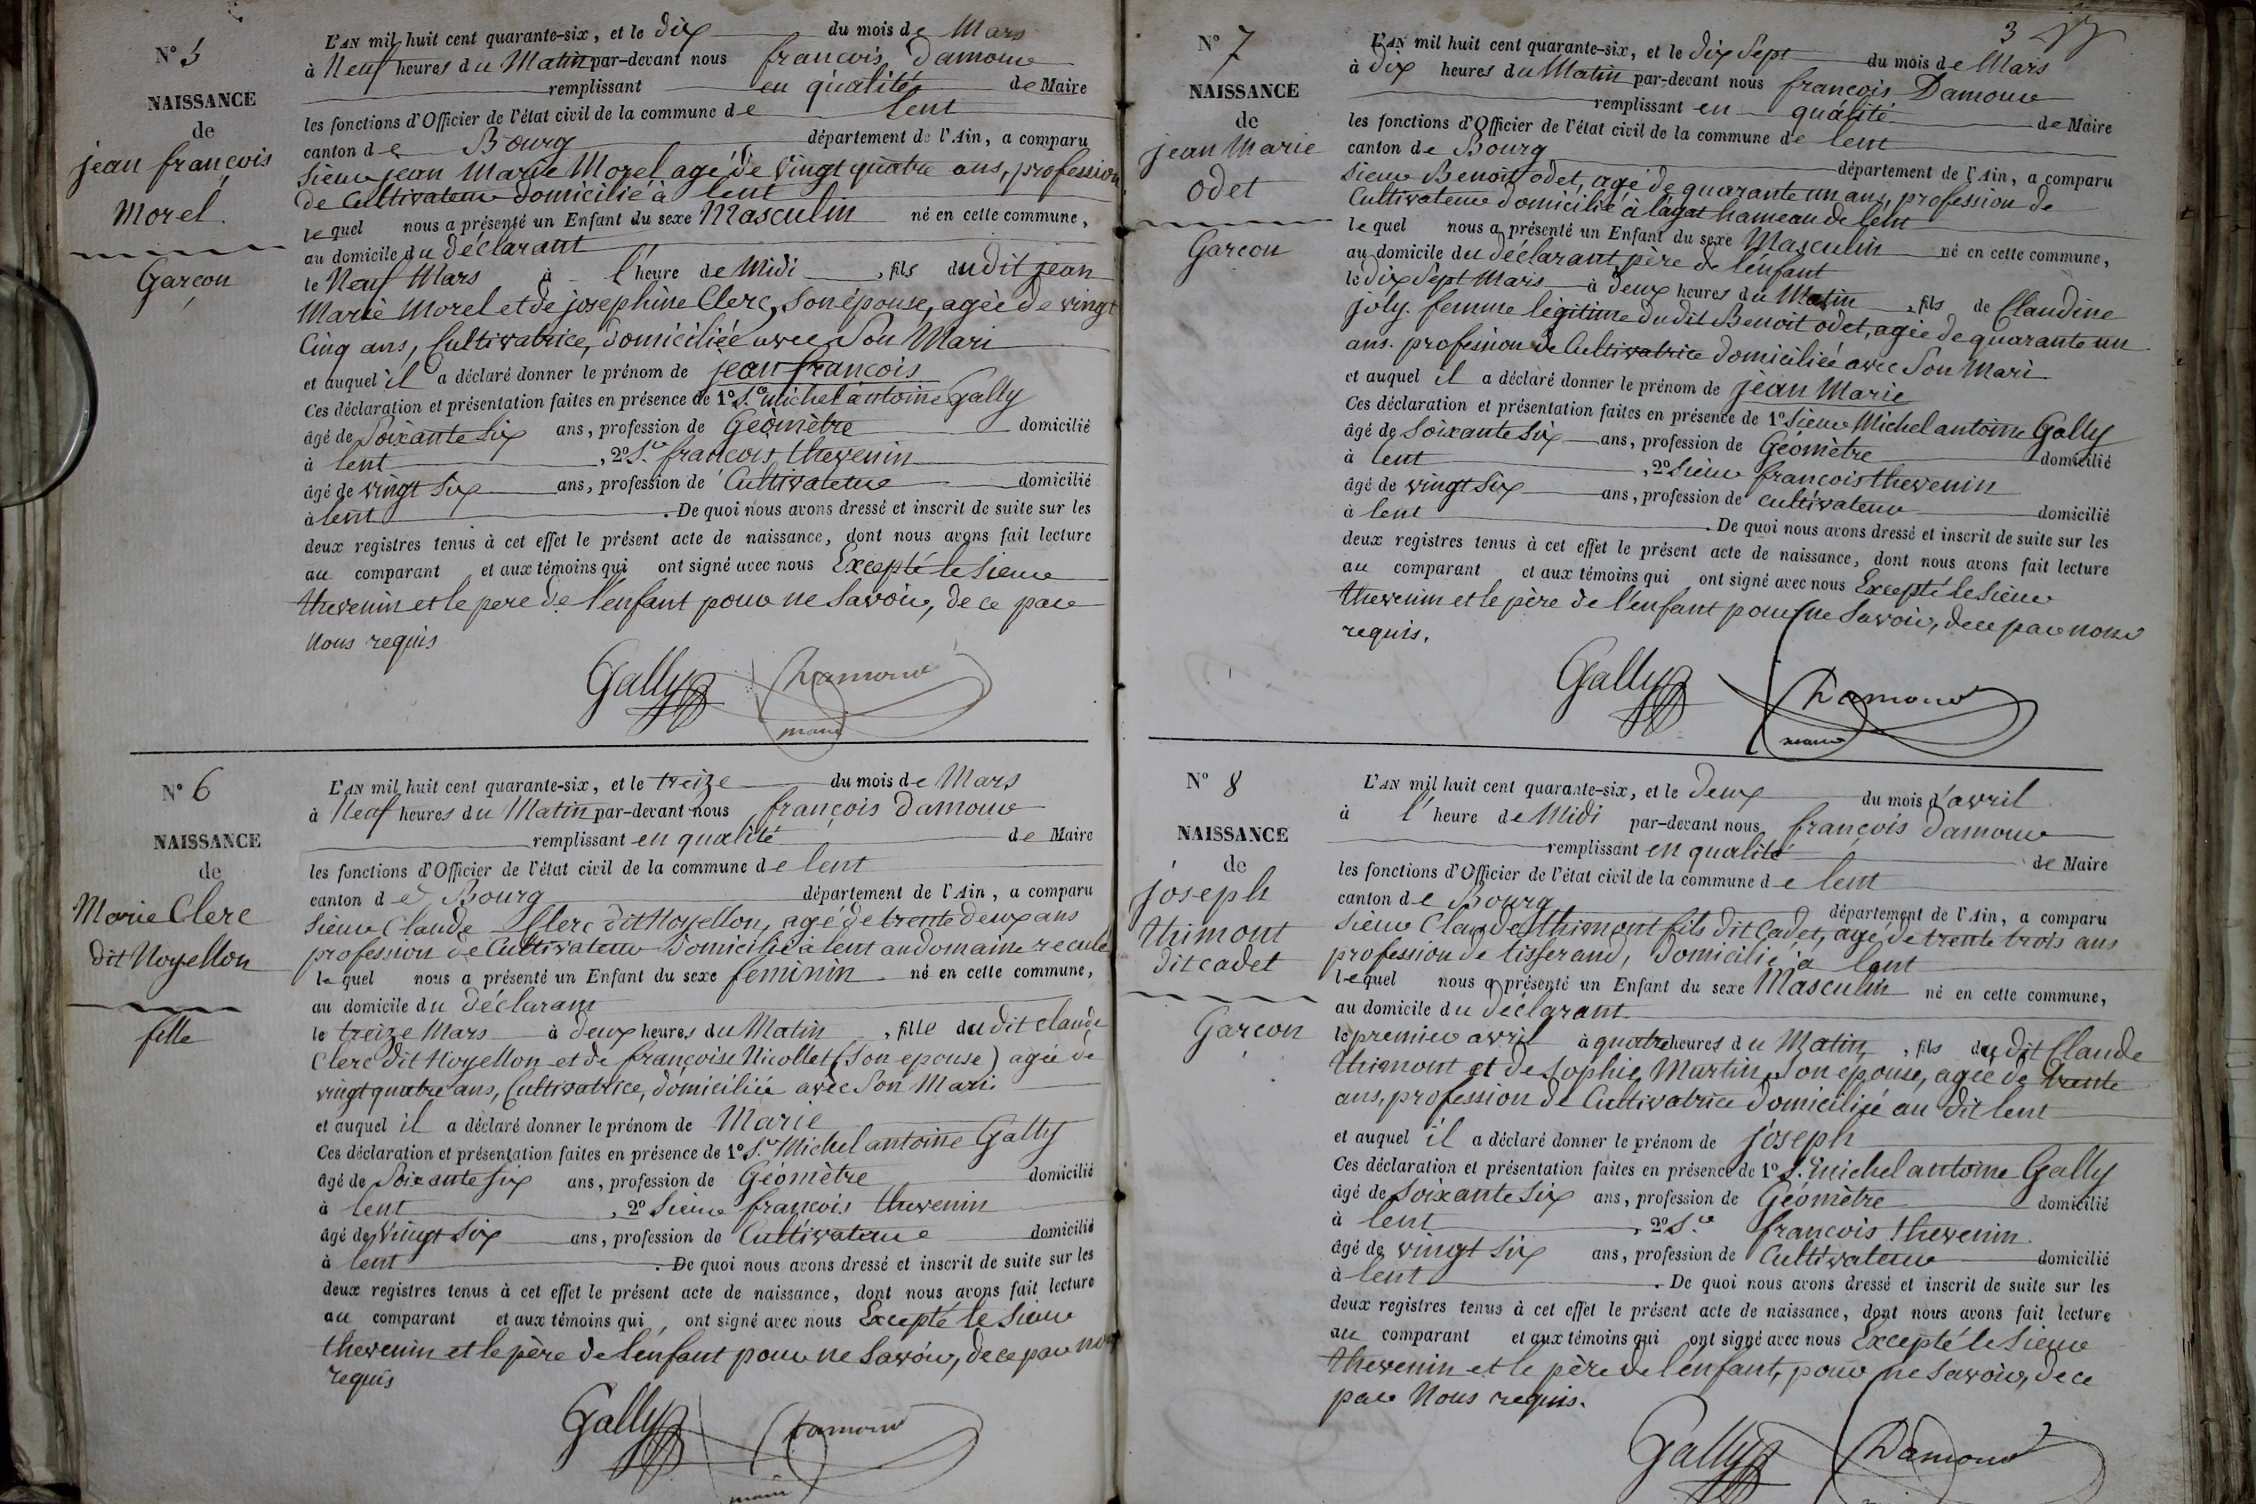 N° 5
NAISSANCE
de
jean françois
Morel.
Garçon
L'AN mil huit cent quarante-six, et le dix du mois de Mars
à Neuf heures du Matin par-devant nous francois Damour
remplissant en qualité de Maire
les fonctions d'Officier de l'état civil de la commune de lent
canton de Bourg département de l'Ain, a comparu
Sieur jean Marie Morel agé de vingt quatre ans, profession
de Cultivateur domicilié à lent
lequel nous a présenté un Enfant du sexe Masculin né en cette commune,
au domicile du déclarant
le Neuf Mars à l'heure de Midi, fils du dit jean
Marie Morel et de josephine Clerc, Son épouse, agée de vingt
Cinq ans, Cultivatrice, domiciliée avec Son Mari
et auquel il a déclaré donner le prénom de jean francois
Ces déclaration et présentation faites en présence de 1° S.r Michel antoine Gally
âgé de Soixante Six ans, profession de Géomètre domicilié
à lent, 2° S.r francois thevenin
âgé de vingt Six ans, profession de Cultivateur domicilié
à lent. De quoi nous avons dressé et inscrit de suite sur les
deux registres tenus à cet effet le présent acte de naissance, dont nous avons fait lecture
au comparant et aux témoins qui ont signé avec nous Excepté le Sieur
thevenin et le pere de l'enfant pour ne Savoir, de ce par
Nous requis
Gally Damour
maire
N° 6
NAISSANCE
de
Marie Clerc
dit Noyellon
fille
L'AN mil huit cent quarante-six, et le treize du mois de Mars
à Neuf heures du Matin par-devant nous françois Damour
remplissant en qualité de Maire
les fonctions d'Officier de l'état civil de la commune de lent
canton de Bourg département de l'Ain, a comparu
Sieur Claude Clerc dit Noyellon, agé de trente deux ans
profession de Cultivateur Domicilié à lent au domaine recule
lequel nous a présenté un Enfant du sexe feminin né en cette commune,
au domicile du déclarant
le treize Mars à deux heures du Matin, fille du dit claude
Clerc dit Noyellon et de françoise Nicollet (Son epouse) agée de
vingt quatre ans, Cultivatrice, domiciliée avec Son Mari
et auquel il a déclaré donner le prénom de Marie
Ces déclaration et présentation faites en présence de 1° S.r Michel antoine Gally
âgé de Soixante Six ans, profession de Géomètre domicilié
à lent, 2° Sieur francois thevenin
âgé de Vingt Six ans, profession de Cultivateur domicilié
à lent. De quoi nous avons dressé et inscrit de suite sur les
deux registres tenus à cet effet le présent acte de naissance, dont nous avons fait lecture
au comparant et aux témoins qui ont signé avec nous Excepté le Sieur
thevenin et le père de l'enfant pour ne Savoir, de ce par nous
requis
Gally Damour
maire
3
N° 7
NAISSANCE
de
jean Marie
odet
Garcon
L'AN mil huit cent quarante-six, et le dix Sept du mois de Mars
à dix heures du Matin par-devant nous françois Damour
remplissant en qualité de Maire
les fonctions d'Officier de l'état civil de la commune de lent
canton de Bourg département de l'Ain, a comparu
Sieur Benoit odet, agé de quarante un ans, profession de
Cultivateur domicilié à lagat hameau de lent
lequel nous a présenté un Enfant du sexe Masculin né en cette commune,
au domicile du déclarant père de l'enfant
le dix Sept Mars à deux heures du Matin, fils de Claudine
joly. femme légitime du dit Benoit odet, agée de quarante un
ans. profession de Cultivatrice domiciliée avec Son Mari
et auquel il a déclaré donner le prénom de jean Marie
Ces déclaration et présentation faites en présence de 1° Sieur Michel antoine Gally
âgé de Soixante Six ans, profession de Géomètre domicilié
à lent, 2° Sieur francois thevenin
âgé de vingt Six ans, profession de Cultivateur domicilié
à lent. De quoi nous avons dressé et inscrit de suite sur les
deux registres tenus à cet effet le présent acte de naissance, dont nous avons fait lecture
au comparant et aux témoins qui ont signé avec nous Excepté le Sieur
thevenin et le père de l'enfant pour ne Savoir, de ce par nous
requis.
Gally Damour
maire
N° 8
NAISSANCE
de
joseph
thimont
dit cadet
Garcon
L'AN mil huit cent quarante-six, et le Deux du mois d'avril
à l'heure de Midi par-devant nous françois Damour
remplissant en qualité de Maire
les fonctions d'Officier de l'état civil de la commune de lent
canton de Bourg département de l'Ain, a comparu
Sieur Claude thimont fils dit Cadet, agé de trente trois ans
profession de tisserand, Domicilié à lent
lequel nous a présenté un Enfant du sexe Masculin né en cette commune,
au domicile du déclarant
le premier avril à quatre heures du Matin, fils du dit Claude
thimont et de Sophie Martin Son epouse, agée de trente
ans, profession de Cultivatrice domiciliée au dit lent
et auquel il a déclaré donner le prénom de joseph
Ces déclaration et présentation faites en présence de 1° S.r Michel antoine Gally
âgé de Soixante Six ans, profession de Géomètre domicilié
à lent, 2° S.r francois thevenin
âgé de vingt Six ans, profession de Cultivateur domicilié
à lent. De quoi nous avons dressé et inscrit de suite sur les
deux registres tenus à cet effet le présent acte de naissance, dont nous avons fait lecture
au comparant et aux témoins qui ont signé avec nous Excepté le Sieur
thevenin et le père de l'enfant, pour ne Savoir, de ce
par Nous requis.
Gally Damour